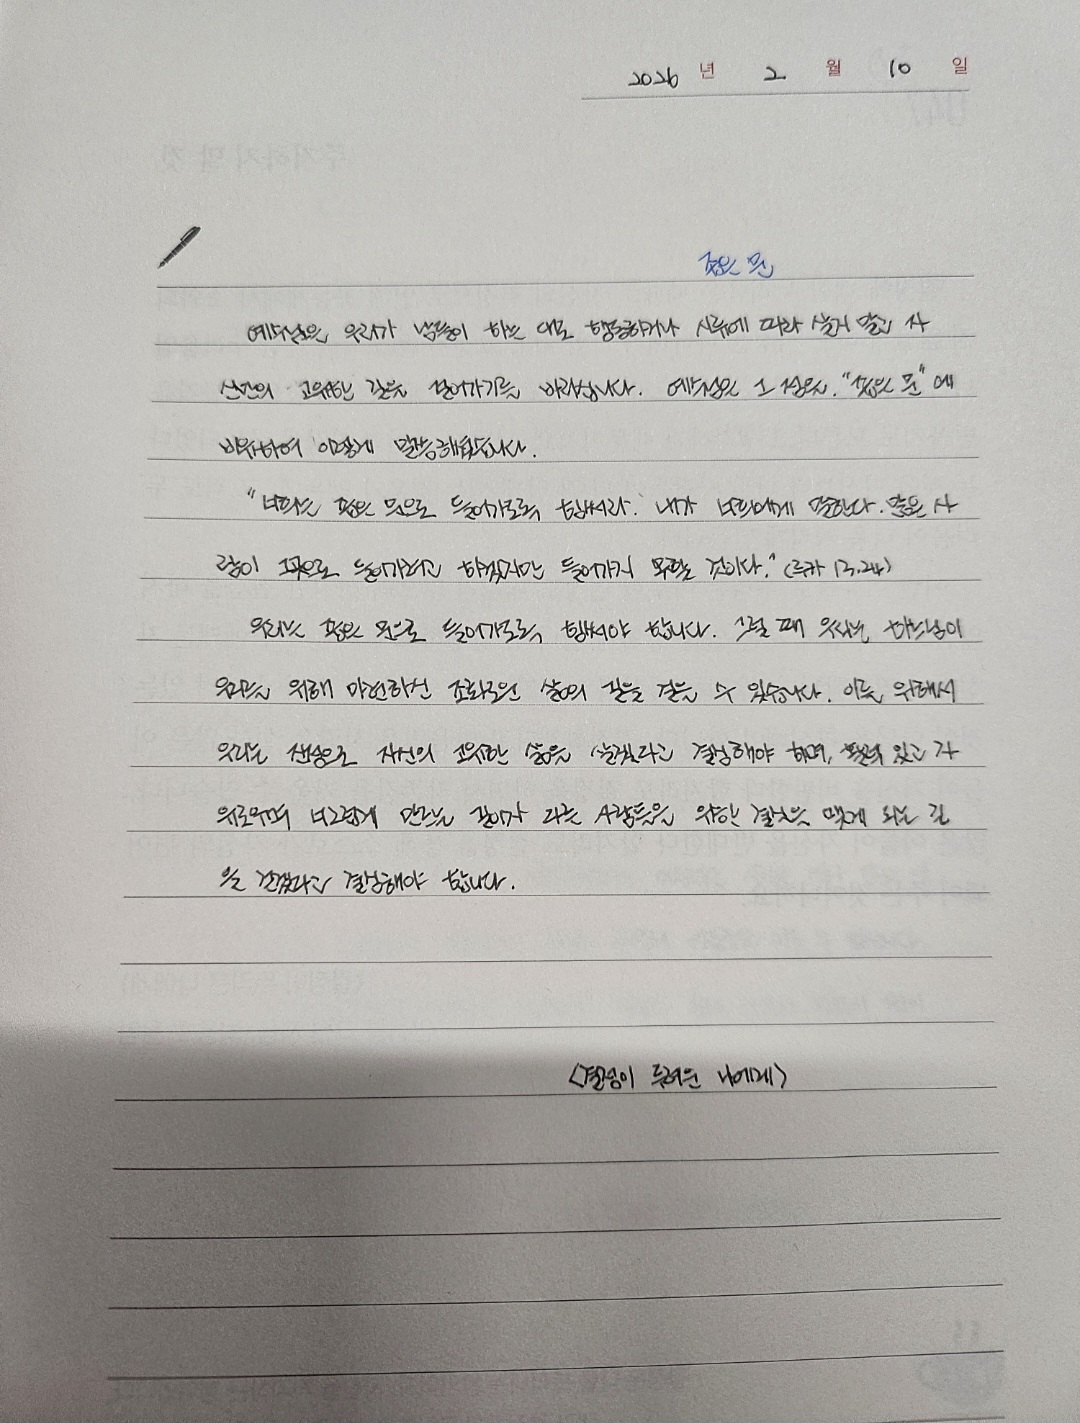 2026 년 2 월 10 일
좁은 문
예수님은 우리가 남들이 하는 대로 행동하거나 시류에 따라 살지 말고 자
신만의 고유한 길을 걸어가기를 바라십니다. 예수님은 그 점을 "좁은 문"에
비유하여 이렇게 말씀해 주십니다.
"너희는 좁은 문으로 들어가도록 힘써라. 내가 너희에게 말한다. 많은 사
람이 그곳으로 들어가려고 하겠지만 들어가지 못할 것이다." (루카 13,24)
우리는 좁은 문으로 들어가도록 힘써야 합니다. 그럴 때 우리는 하느님이
우리를 위해 마련하신 조화로운 삶의 길을 걸을 수 있습니다. 이를 위해서
우리는 전심으로 자신의 고유한 삶을 살겠다고 결심해야 하며, 활력 있고 자
유로우며 너그럽게 만드는 길이자 다른 사람들을 위한 결실을 맺게 되는 길
을 걷겠다고 결심해야 합니다.
<결정이 두려운 나에게>